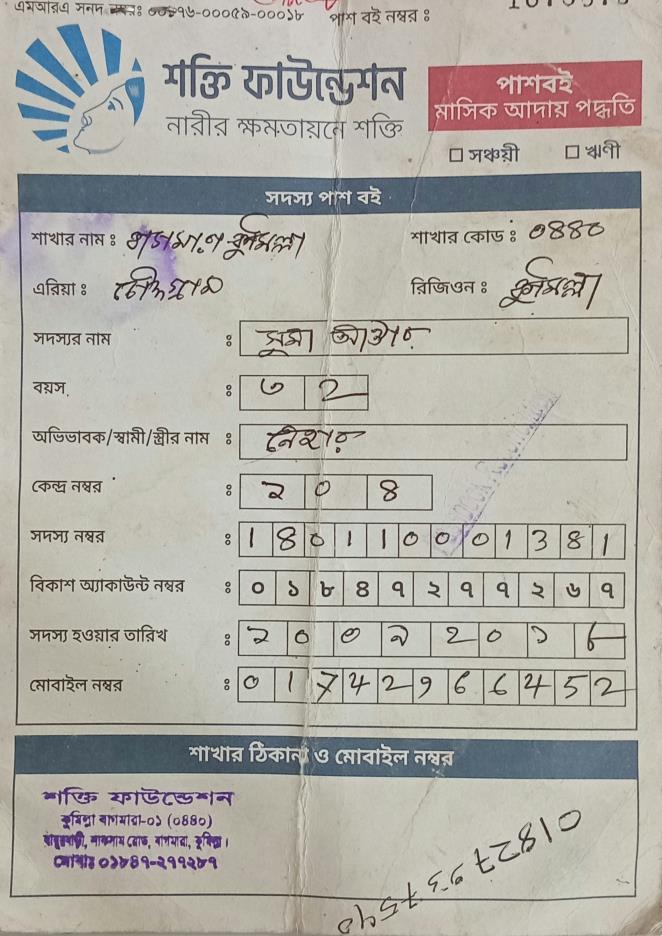 এমআরএ সনদ নম্বরঃ ০০৪৭৬-০০০৫৯-০০০১৮ পাশ বই নম্বর ঃ
শক্তি ফাউন্ডেশন
নারীর ক্ষমতায়নে শক্তি
পাশবই
মাসিক আদায় পদ্ধতি
সঞ্চয়ী ঋণী
সদস্য পাশ বই
শাখার নাম ঃ কুমিল্লা শাখার কোড ঃ 0৪৪০
এরিয়া ঃ রিজিওন ঃ কুমিল্লা
সদস্যর নাম ঃ সুমা আক্তার
বয়স ঃ ৩2
অভিভাবক/স্বামী/স্ত্রীর নাম ঃ নেহার
কেন্দ্র নম্বর ঃ ২০৪
সদস্য নম্বর ঃ 1801100001381
বিকাশ অ্যাকাউন্ট নম্বর ঃ ০১৮৪৭২৭৭২৬৭
সদস্য হওয়ার তারিখ ঃ
মোবাইল নম্বর ঃ 01742966452
শাখার ঠিকানা ও মোবাইল নম্বর
শক্তি ফাউন্ডেশন
কুমিল্লা বাগমারা-০১ (০৪৪০)
লাকসাম রোড, বাগমারা, কুমিল্লা।